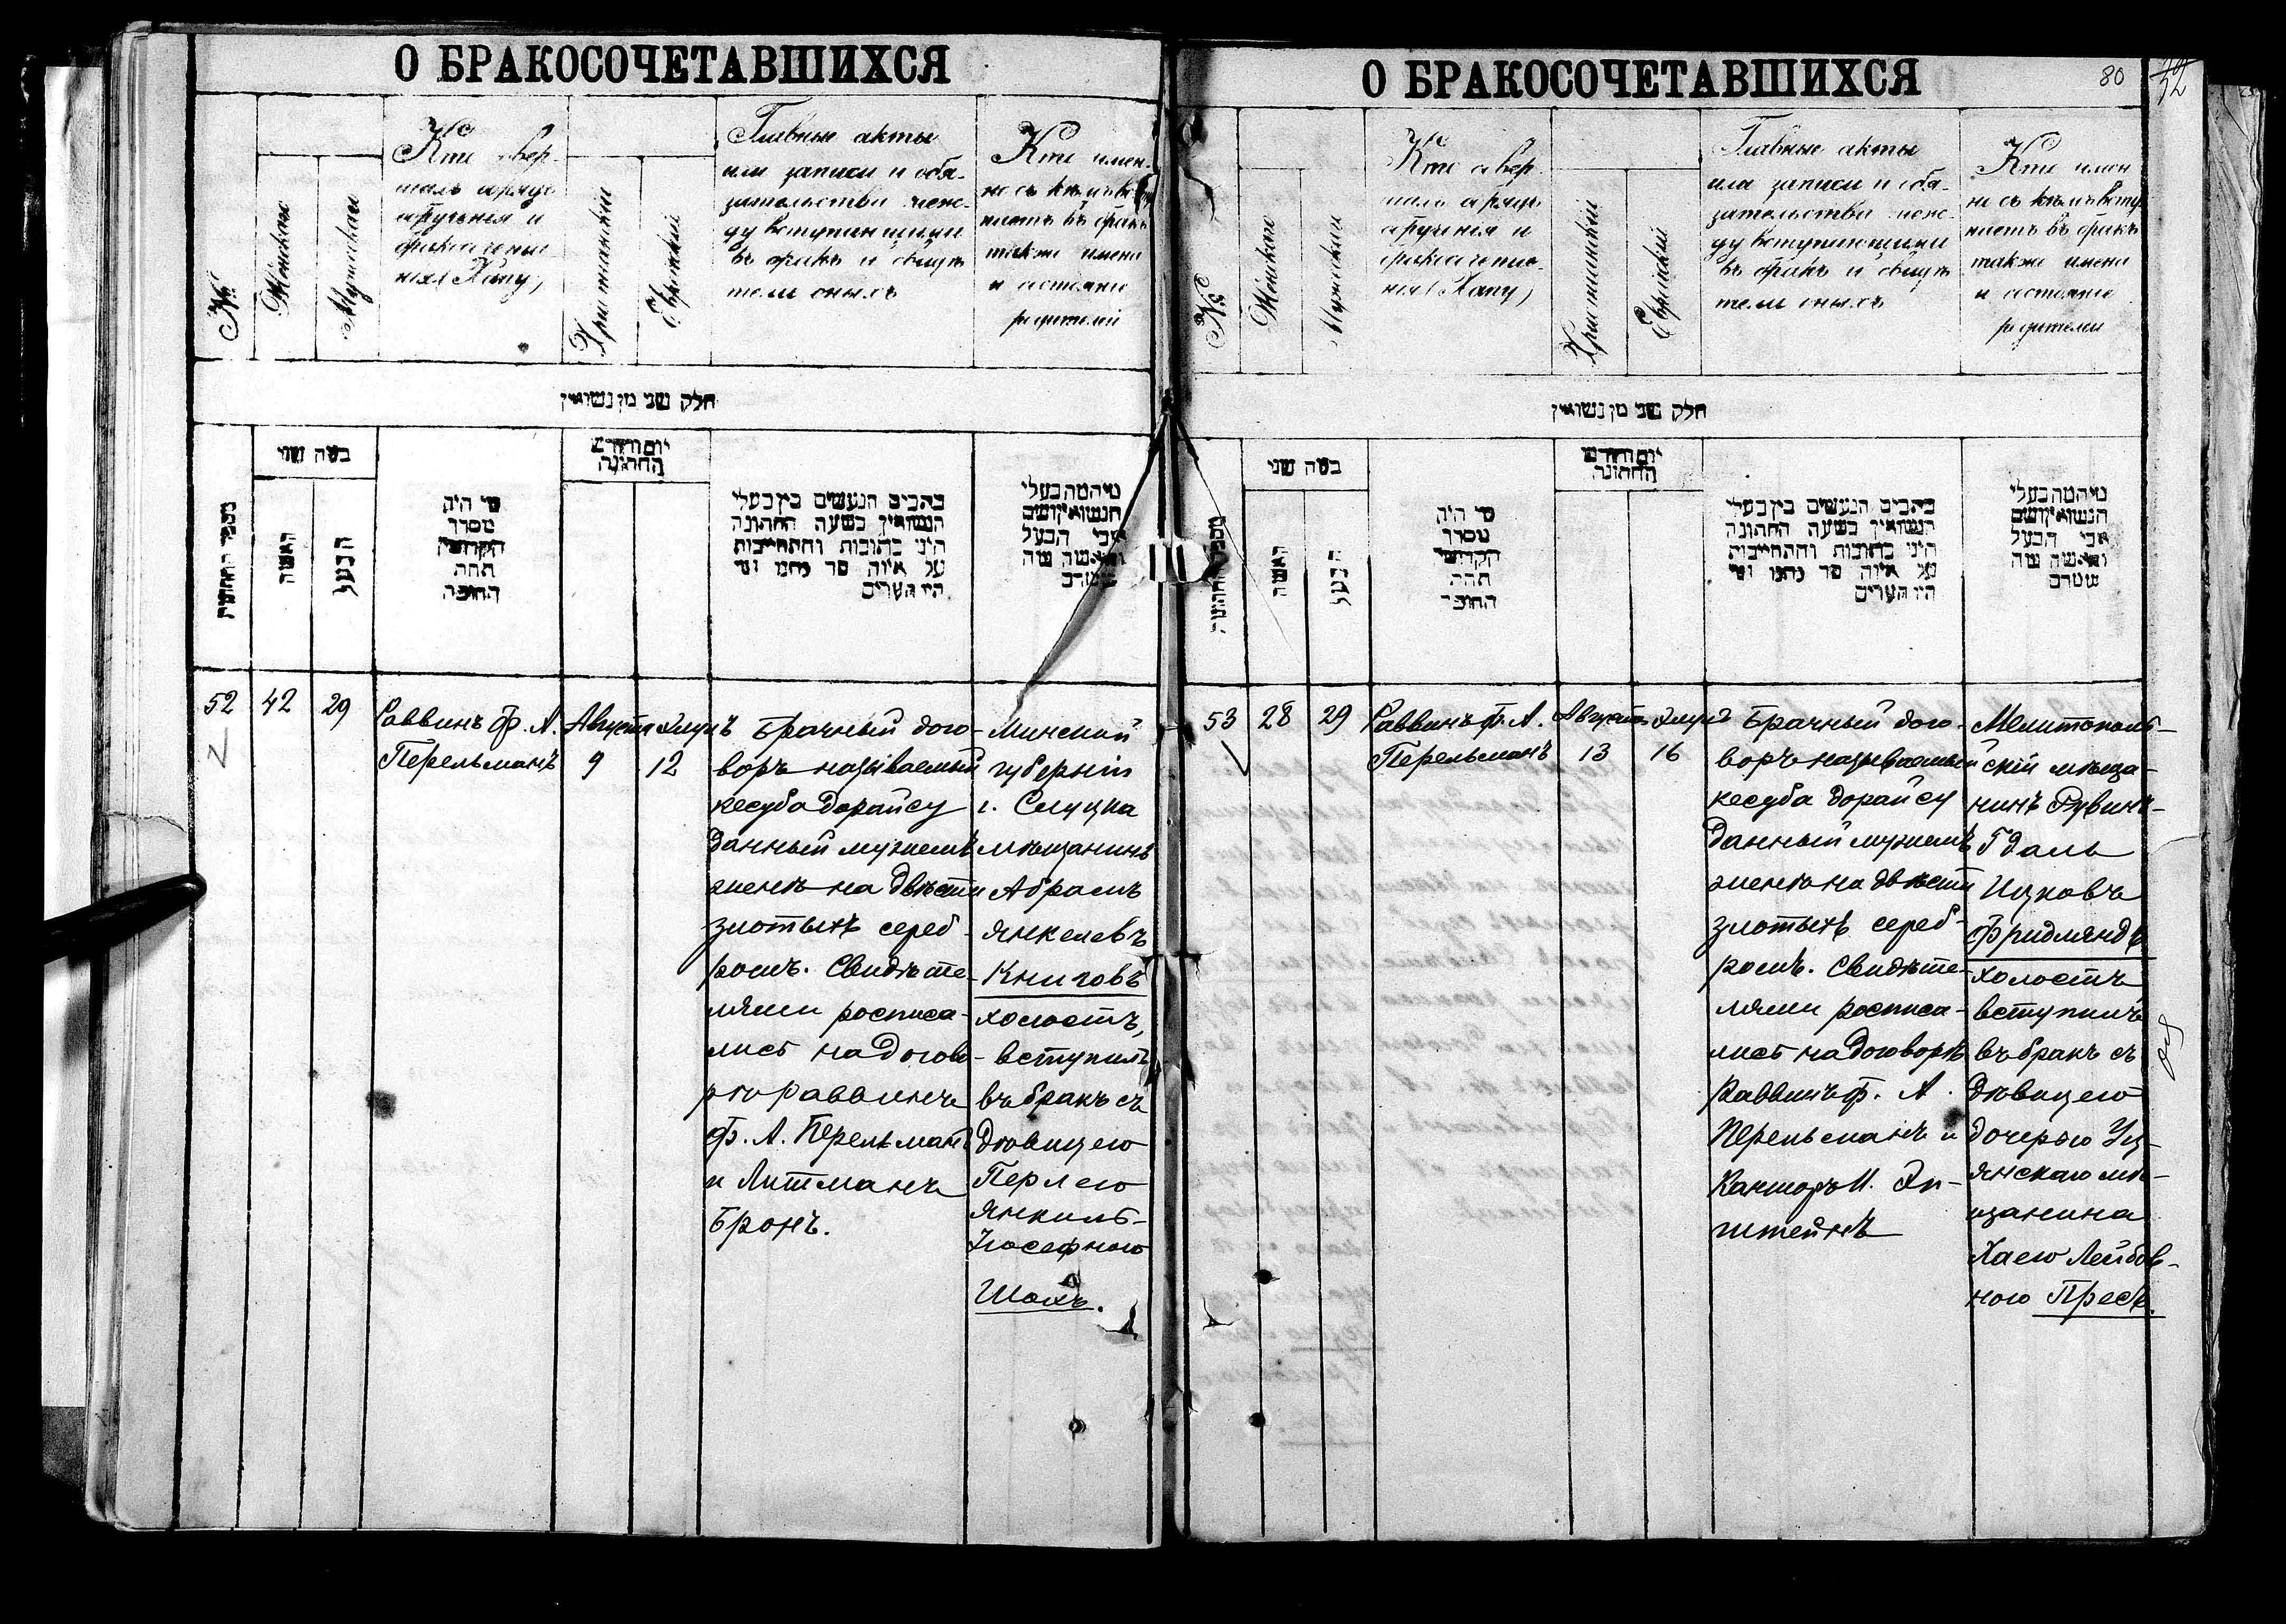 О БРАКОСОЧЕТАВШИХСЯ
№
Женская
Мужеская
Кто совер-
шалъ обрядъ
обрученія и
бракосочета-
нія (Хупу)
Христіанскій
Еврейскій
Главные акты
или записи и обя-
зательства меж-
ду вступающими
въ бракъ и свидѣ-
тели оныхъ
Кто имен-
но съ кѣмъ всту-
паетъ въ бракъ
также имена
и состояніе
родителей
חלק שני מן נשואין
מספר החתונות
כמה שני
האשה
הבעל
מי היה
מסדר
הקדושין
תחת
החופה
יום וחודש
החתונה
כתבים הנעשים בין בעלי
הנשואין בשעה החתונה
היינו כתובות והתחייבות
על איזה סך נתנו ומי
היו העדים
מי המה בעלי
הנשואין ושם
אבי הבעל
והאשה
52
42
29
Раввинъ Ф. А.
Перельманъ
Августа
9
Элулъ
12
Брачный дого-
воръ называемый
кесуба дорайсу
данный мужемъ
женѣ на двѣсти
злотыхъ сереб-
ромъ. Свидѣте-
лями росписа-
лись на догово-
рѣ раввинъ
Ф. А. Перельманъ
и Литманъ
Бронъ.
Минской
губерніи
г. Слуцка
мѣщанинъ
Абрамъ
Янкелевъ
Книговъ
холостъ,
вступилъ
въ бракъ съ
дѣвицею
Перлею
Янкиль-
Іосефною
Шахъ.
О БРАКОСОЧЕТАВШИХСЯ
80
№
Женская
Мужеская
Кто совер-
шалъ обрядъ
обрученія и
бракосочета-
нія (Хупу)
Христіанскій
Еврейскій
Главные акты
или записи и обя-
зательства меж-
ду вступающими
въ бракъ и свидѣ-
тели оныхъ
Кто имен-
но съ кѣмъ всту-
паетъ въ бракъ
также имена
и состояніе
родителей
חלק שני מן נשואין
מספר החתונות
כמה שני
האשה
הבעל
מי היה
מסדר
הקדושין
תחת
החופה
יום וחודש
החתונה
כתבים הנעשים בין בעלי
הנשואין בשעה החתונה
היינו כתובות והתחייבות
על איזה סך נתנו ומי
היו העדים
מי המה בעלי
הנשואין ושם
אבי הבעל
והאשה
53
28
29
Раввинъ Ф. А.
Перельманъ
Августа
13
Элулъ
16
Брачный дого-
воръ называемый
кесуба дорайсу
данный мужемъ
женѣ на двѣсти
злотыхъ сереб-
ромъ. Свидѣте-
лями росписа-
лись на договорѣ
раввинъ Ф. А.
Перельманъ и
Канторъ И. Эп-
штейнъ
Мелитополь-
скій мѣща-
нинъ Рувинъ-
Гдаль
Ицковъ
Фридляндъ
холостъ
вступилъ
въ бракъ съ
дѣвицею
дочерью Уц-
янскаго мѣ-
щанина
Хаею Лейбов-
ною Пресъ.